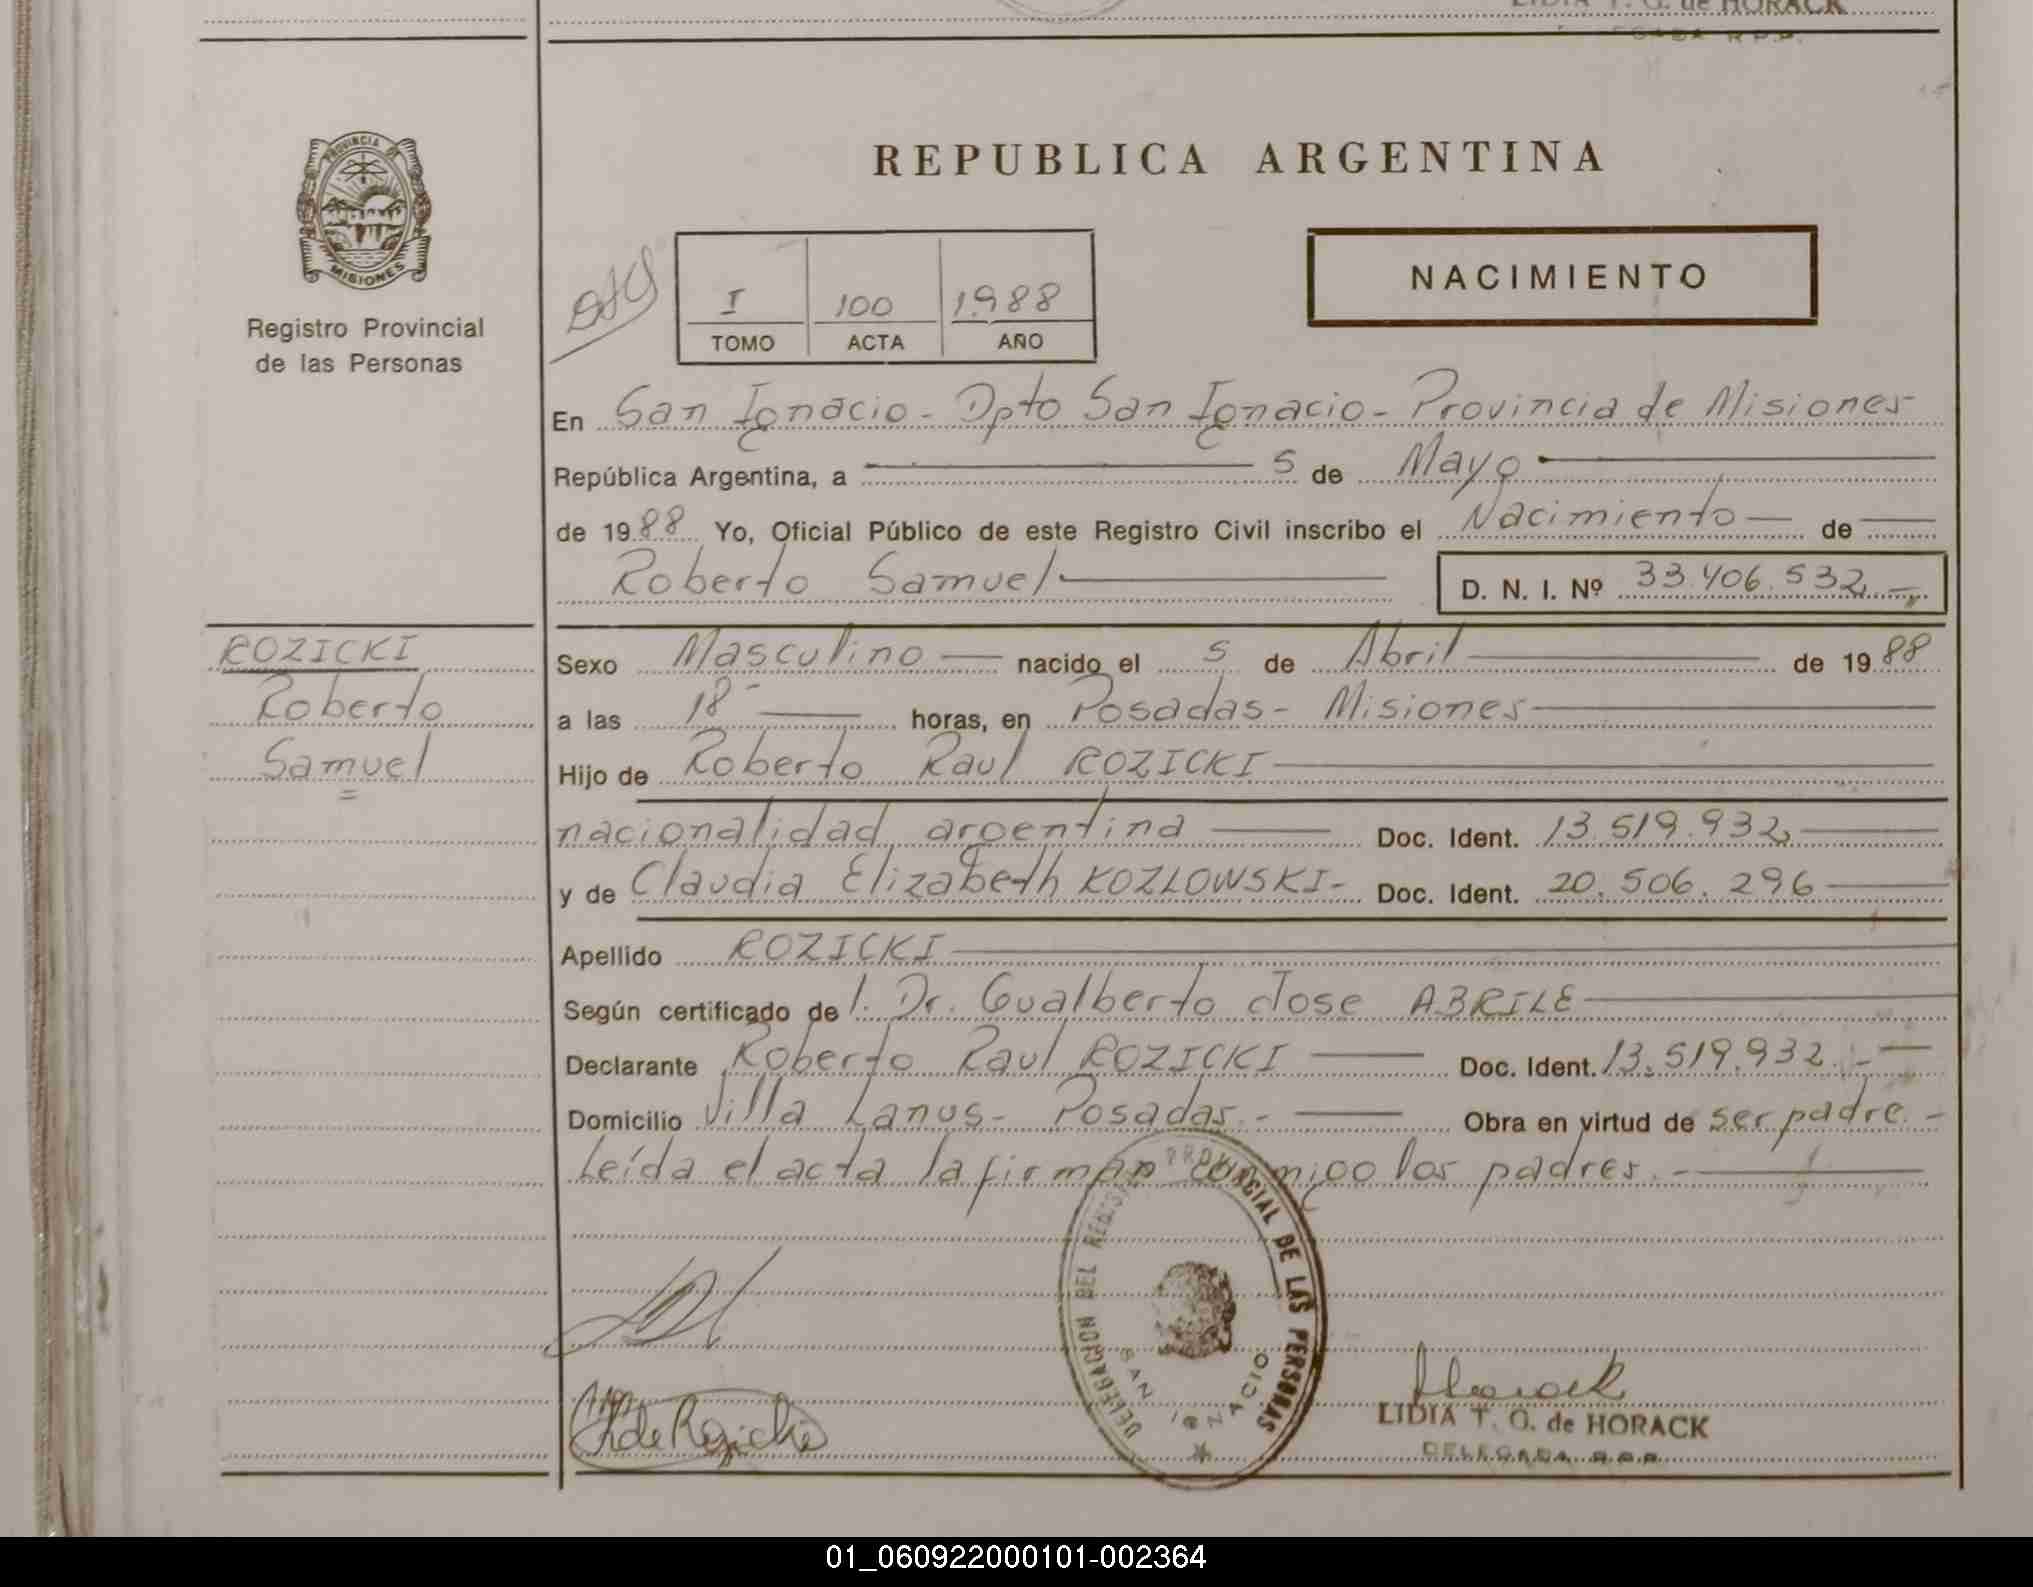 LIDIA T. G. de HORACK
PROVINCIA DE
MISIONES
Registro Provincial
de las Personas
REPUBLICA ARGENTINA
I 100 1.988
TOMO ACTA AÑO
NACIMIENTO
En San Ignacio - Dpto San Ignacio - Provincia de Misiones
República Argentina, a 5 de Mayo
de 1988 Yo, Oficial Público de este Registro Civil inscribo el Nacimiento de
Roberto Samuel D. N. I. Nº 33.406.532
ROZICKI
Roberto
Samuel
Sexo Masculino nacido el 5 de Abril de 1988
a las 18 horas, en Posadas - Misiones
Hijo de Roberto Raul ROZICKI
nacionalidad argentina Doc. Ident. 13.519.932
y de Claudia Elizabeth KOZLOWSKI - Doc. Ident. 20.506.296
Apellido ROZICKI
Según certificado de l. Dr. Gualberto Jose ABRILE
Declarante Roberto Raul ROZICKI Doc. Ident. 13.519.932.-
Domicilio Villa Lanus - Posadas.- Obra en virtud de ser padre.-
Leída el acta la firman conmigo los padres.-
DELEGACION DEL REGISTRO PROVINCIAL DE LAS PERSONAS
SAN IGNACIO
LIDIA T. G. de HORACK
DELEGADA R.P.P.
01_060922000101-002364